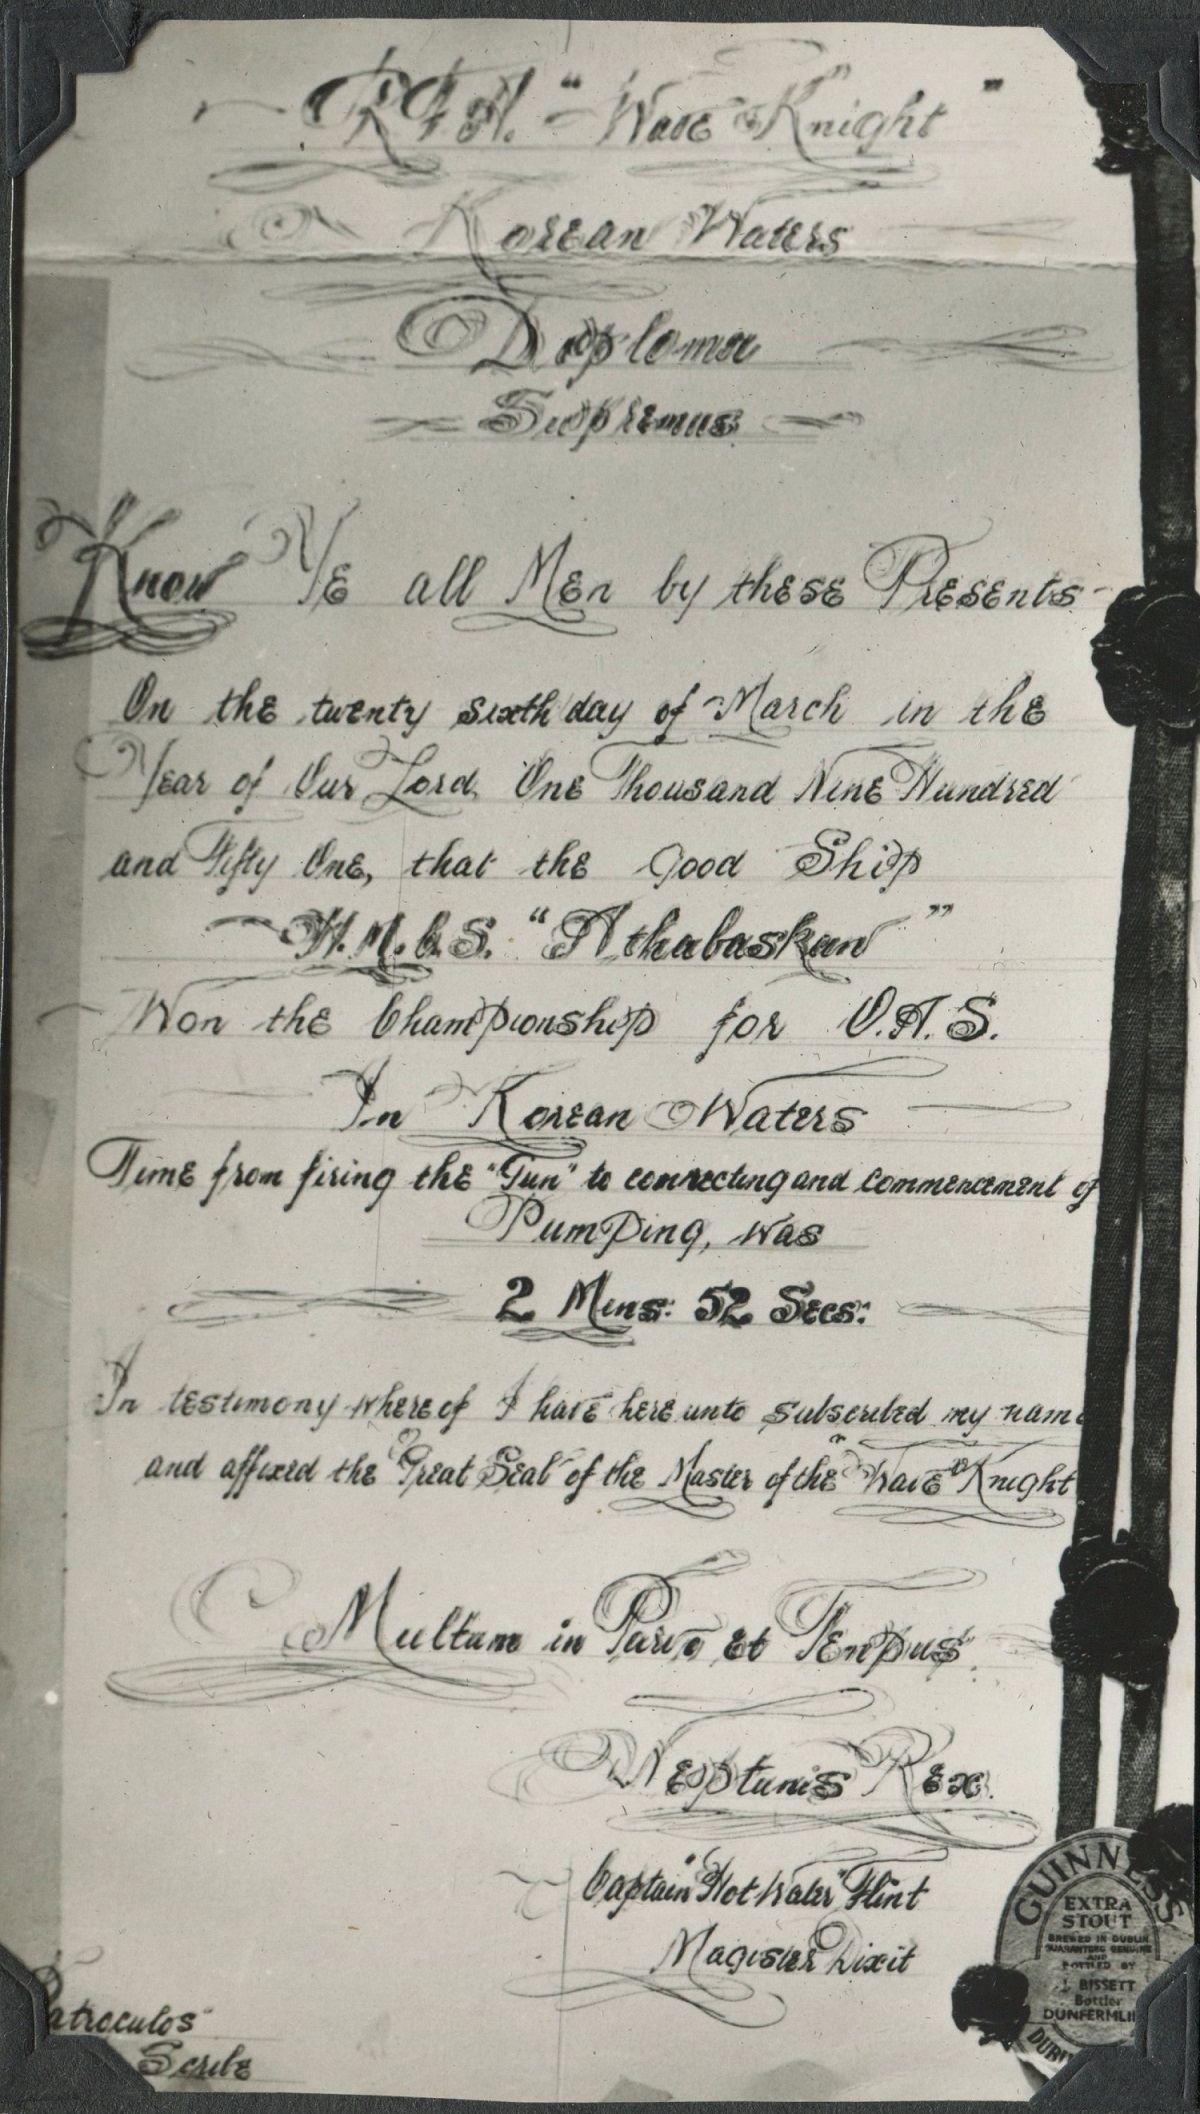 R F A. "Wave Knight"
Korean Waters
Diploma
Supremus
Know Ye all Men by these Presents
On the twenty sixth day of March in the
Year of Our Lord, One Thousand Nine Hundred
and Fifty One, that the Good Ship
H.M.C.S. "Athabaskan"
Won the Championship for O.A.S.
In Korean Waters
Time from firing the "Gun" to connecting and commencement of
Pumping, was
2 Mins: 52 Secs:
In testimony where of I have here unto subscribed my name
and affixed the "Great Seal" of the Master of the "Wave Knight
Multum in Parvo et Tempus
Neptunis Rex.
Captain "Hot Water" Flint
Magister Dixit
Patroculos"
Scribe
GUINNESS
EXTRA
STOUT
BREWED IN DUBLIN
GUARANTEED GENUINE
AND
BOTTLED BY
J. BISSETT
Bottler
DUNFERMLI